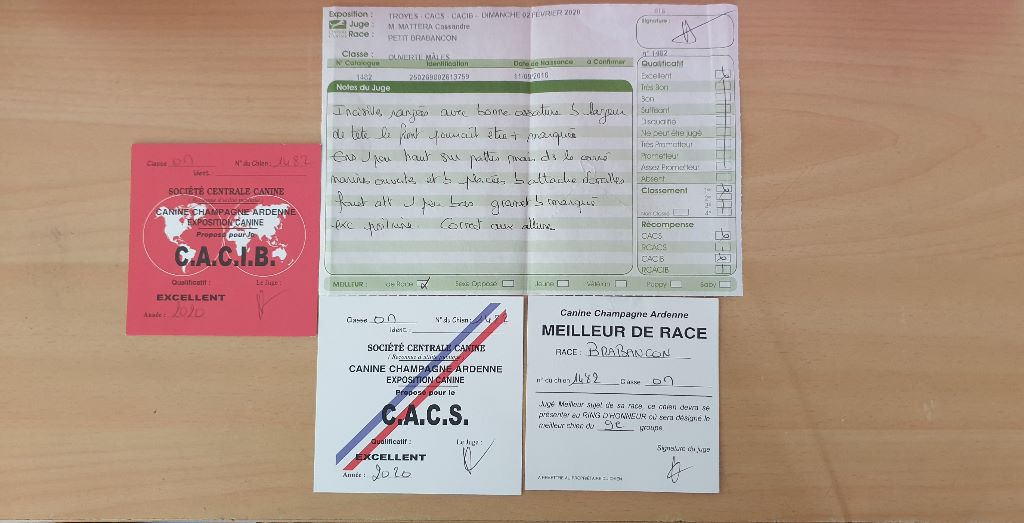 Exposition : TROYES - CACS - CACIB - DIMANCHE 02 FEVRIER 2020
Juge : M. MATTERA Cassandre
Race : PETIT BRABANCON
Signature :
Classe : OUVERTE MÂLES
n° 1482
N° Catalogue Identification Date de Naissance à Confirmer
1482 250269802613759 11/09/2016
Notes du Juge
Incisives rangées avec bonne ossature b largeur
de tête le front pourrait être + marqué
Ens 1 peu haut sur pattes mais ds le carré
narines ouvertes et b placées b attache d'oreilles
fouet att 1 peu bas garrot b marqué
exc poitrine Correct aux allures
Qualificatif
Excellent
Très Bon
Bon
Suffisant
Disqualifié
Ne peut être jugé
Très Prometteur
Prometteur
Assez Prometteur
Absent
Classement 1er
2e
3e
Non Classé 4e
Récompense
CACS
RCACS
CACIB
RCACIB
MEILLEUR : de Race Sexe Opposé Jeune Vétéran Puppy Baby
Classe ON N° du Chien : 1482
Ident. :
SOCIÉTÉ CENTRALE CANINE
(Reconnue d'utilité publique)
CANINE CHAMPAGNE ARDENNE
EXPOSITION CANINE
Proposé pour le
C.A.C.I.B.
Qualificatif : Le Juge :
EXCELLENT
Année : 2020
Classe ON N° du Chien : 1482
Ident. :
SOCIÉTÉ CENTRALE CANINE
(Reconnue d'utilité publique)
CANINE CHAMPAGNE ARDENNE
EXPOSITION CANINE
Proposé pour le
C.A.C.S.
Qualificatif : Le Juge :
EXCELLENT
Année : 2020
Canine Champagne Ardenne
MEILLEUR DE RACE
RACE : BRABANCON
n° du chien 1482 Classe ON
Jugé Meilleur sujet de sa race, ce chien devra se
présenter au RING D'HONNEUR où sera désigné le
meilleur chien du 9e groupe.
Signature du juge
A REMETTRE AU PROPRIETAIRE DU CHIEN